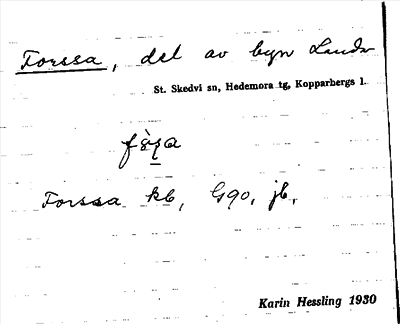 Forssa, del av byn Landa
St. Skedvi sn, Hedemora tg, Kopparbergs l.
Forssa kb, G90, jb,
Karin Hessling 1930